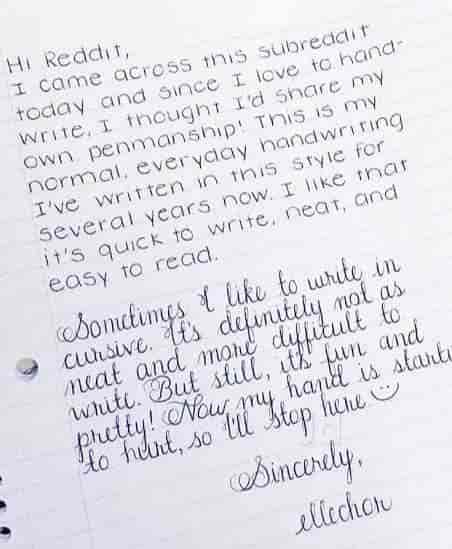 Hi Reddit,
I came across this subreddit
today and since I love to hand-
write, I thought I'd share my
own penmanship! This is my
normal, everyday handwriting
I've written in this style for
several years now. I like that
it's quick to write, neat, and
easy to read.
Sometimes I like to write in
cursive. It's definitely not as
neat and more difficult to
write. But still, it's fun and
pretty! Now my hand is starti
to hurt, so I'll stop here
Sincerely,
ellechor